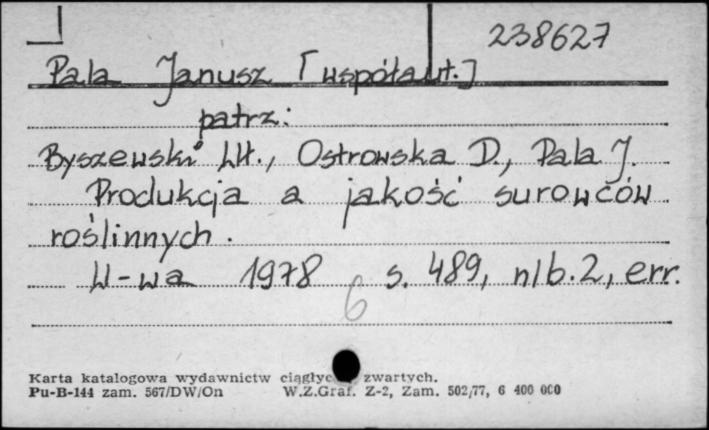 238627
Pala Janusz [współaut.]
patrz:
Byszewski Wł., Ostrowska D., Pala J.
Produkcja a jakość surowców
roślinnych.
W-wa 1978 s. 489, nlb. 2, err.
6
Karta katalogowa wydawnictw zwartych.
Pu-B-144 zam. 567/DW/On W.Z.Graf. Z-2, Zam. 502/77, 6 400 000